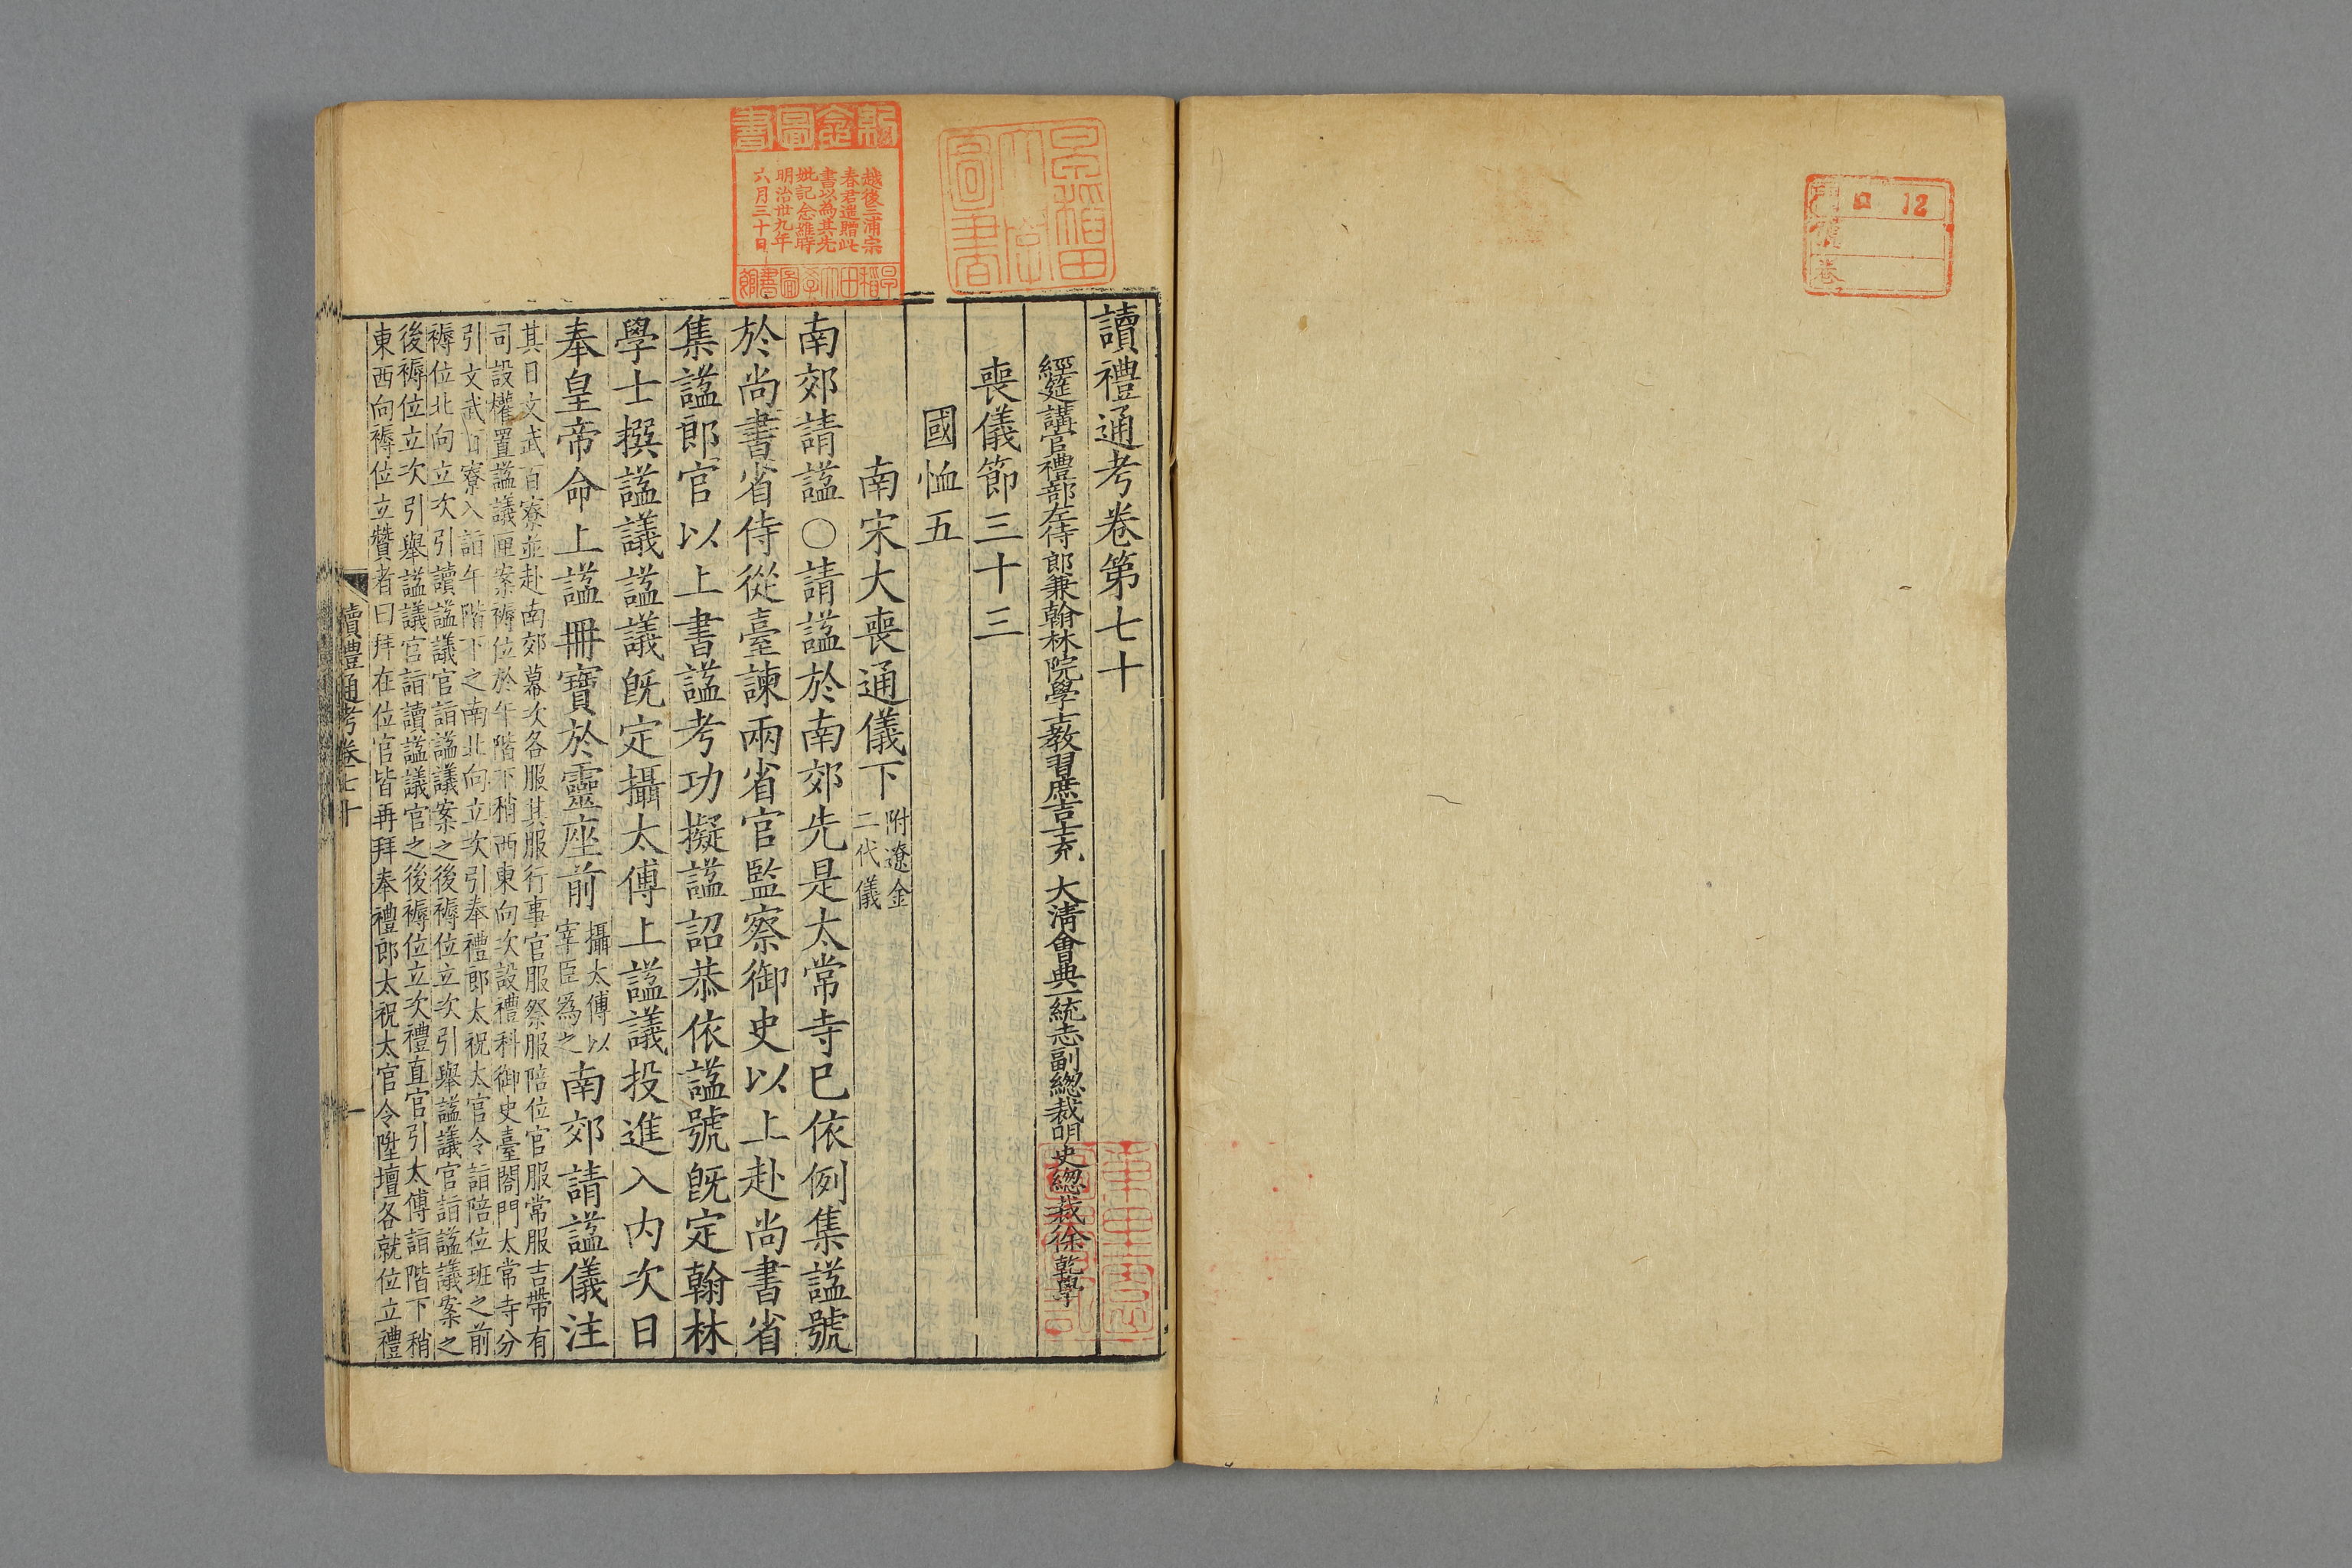 讀禮通考卷第七十
經筵講官禮部左侍郎兼翰林院學士教習庶吉士充 大清會典一統志副總裁明史總裁徐乾學
喪儀節三十三
國恤五
南宋大喪通儀下附遼金
二代儀
南郊請諡○請諡於南郊先是太常寺已依例集諡號
於尚書省侍從臺諫兩省官監察御史以上赴尚書省
集諡郎官以上書諡考功擬諡詔恭依諡號旣定翰林
學士撰諡議諡議旣定攝太傅上諡議投進入内次日
奉皇帝命上諡冊寶於靈座前攝太傅以
宰臣爲之南郊請諡儀注
其日文武百寮並赴南郊幕次各服其服行事官服祭服陪位官服常服吉帶有
司設權置諡議匣案褥位於午階下稍西東向次設禮科御史臺閤門太常寺分
引文武百寮入詣午階下之南北向立次引奉禮郎太祝太官令詣陪位班之前
褥位北向立次引讀諡議官詣諡議案之後褥位立次引舉諡議官詣諡議案之
後褥位立次引舉諡議官詣讀諡議官之後褥位立次禮直官引太傅詣階下稍
東西向褥位立贊者曰拜在位官皆再拜奉禮郎太祝太官令陞壇各就位立禮
讀禮通考卷七十
一
越後三浦宗
春君遺贈此
書以為其先
妣記念維時
明治卅九年
六月三十日
早稻田大學圖書館
ロ 12
號
卷